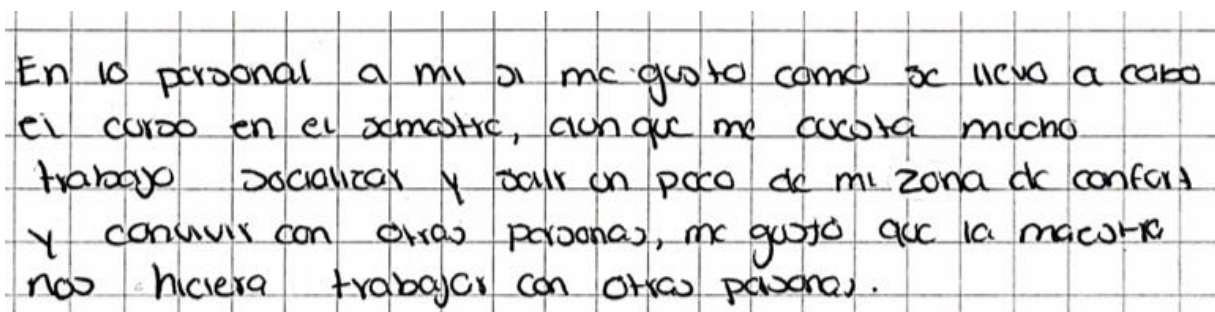 En lo personal a mi si me gusto como se llevo a cabo
el curso en el semestre, aunque me cuesta mucho
trabajo socializar y salir un poco de mi zona de confort
y convivir con otras personas, me gustó que la maestra
nos hiciera trabajar con otras personas.